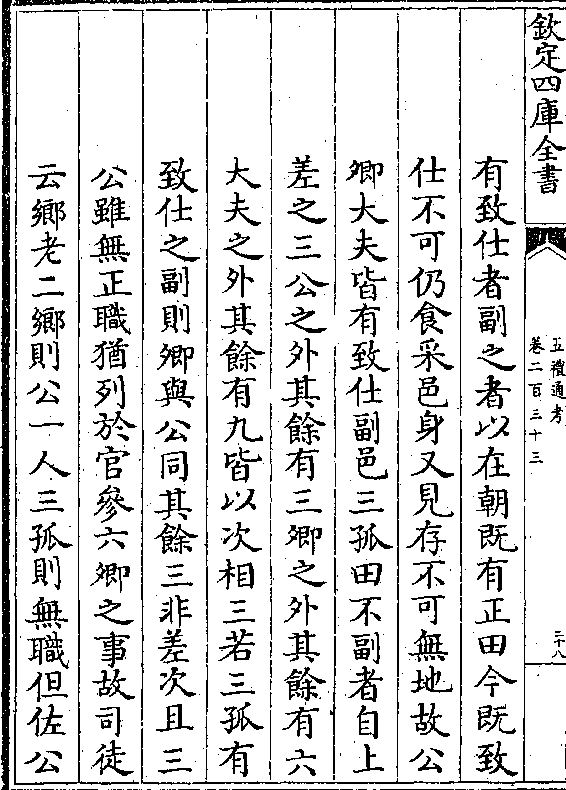 欽定四庫全書
五禮通考
卷二百三十三
三十八
有致仕者副之者以在朝既有正田今既致
仕不可仍食采邑身又見存不可無地故公
卿大夫皆有致仕副邑三孤田不副者自上
差之三公之外其餘有三卿之外其餘有六
大夫之外其餘有九皆以次相三若三孤有
致仕之副則卿與公同其餘三非差次且三
公雖無正職猶列於官參六卿之事故司徒
云鄉老二鄉則公一人三孤則無職但佐公